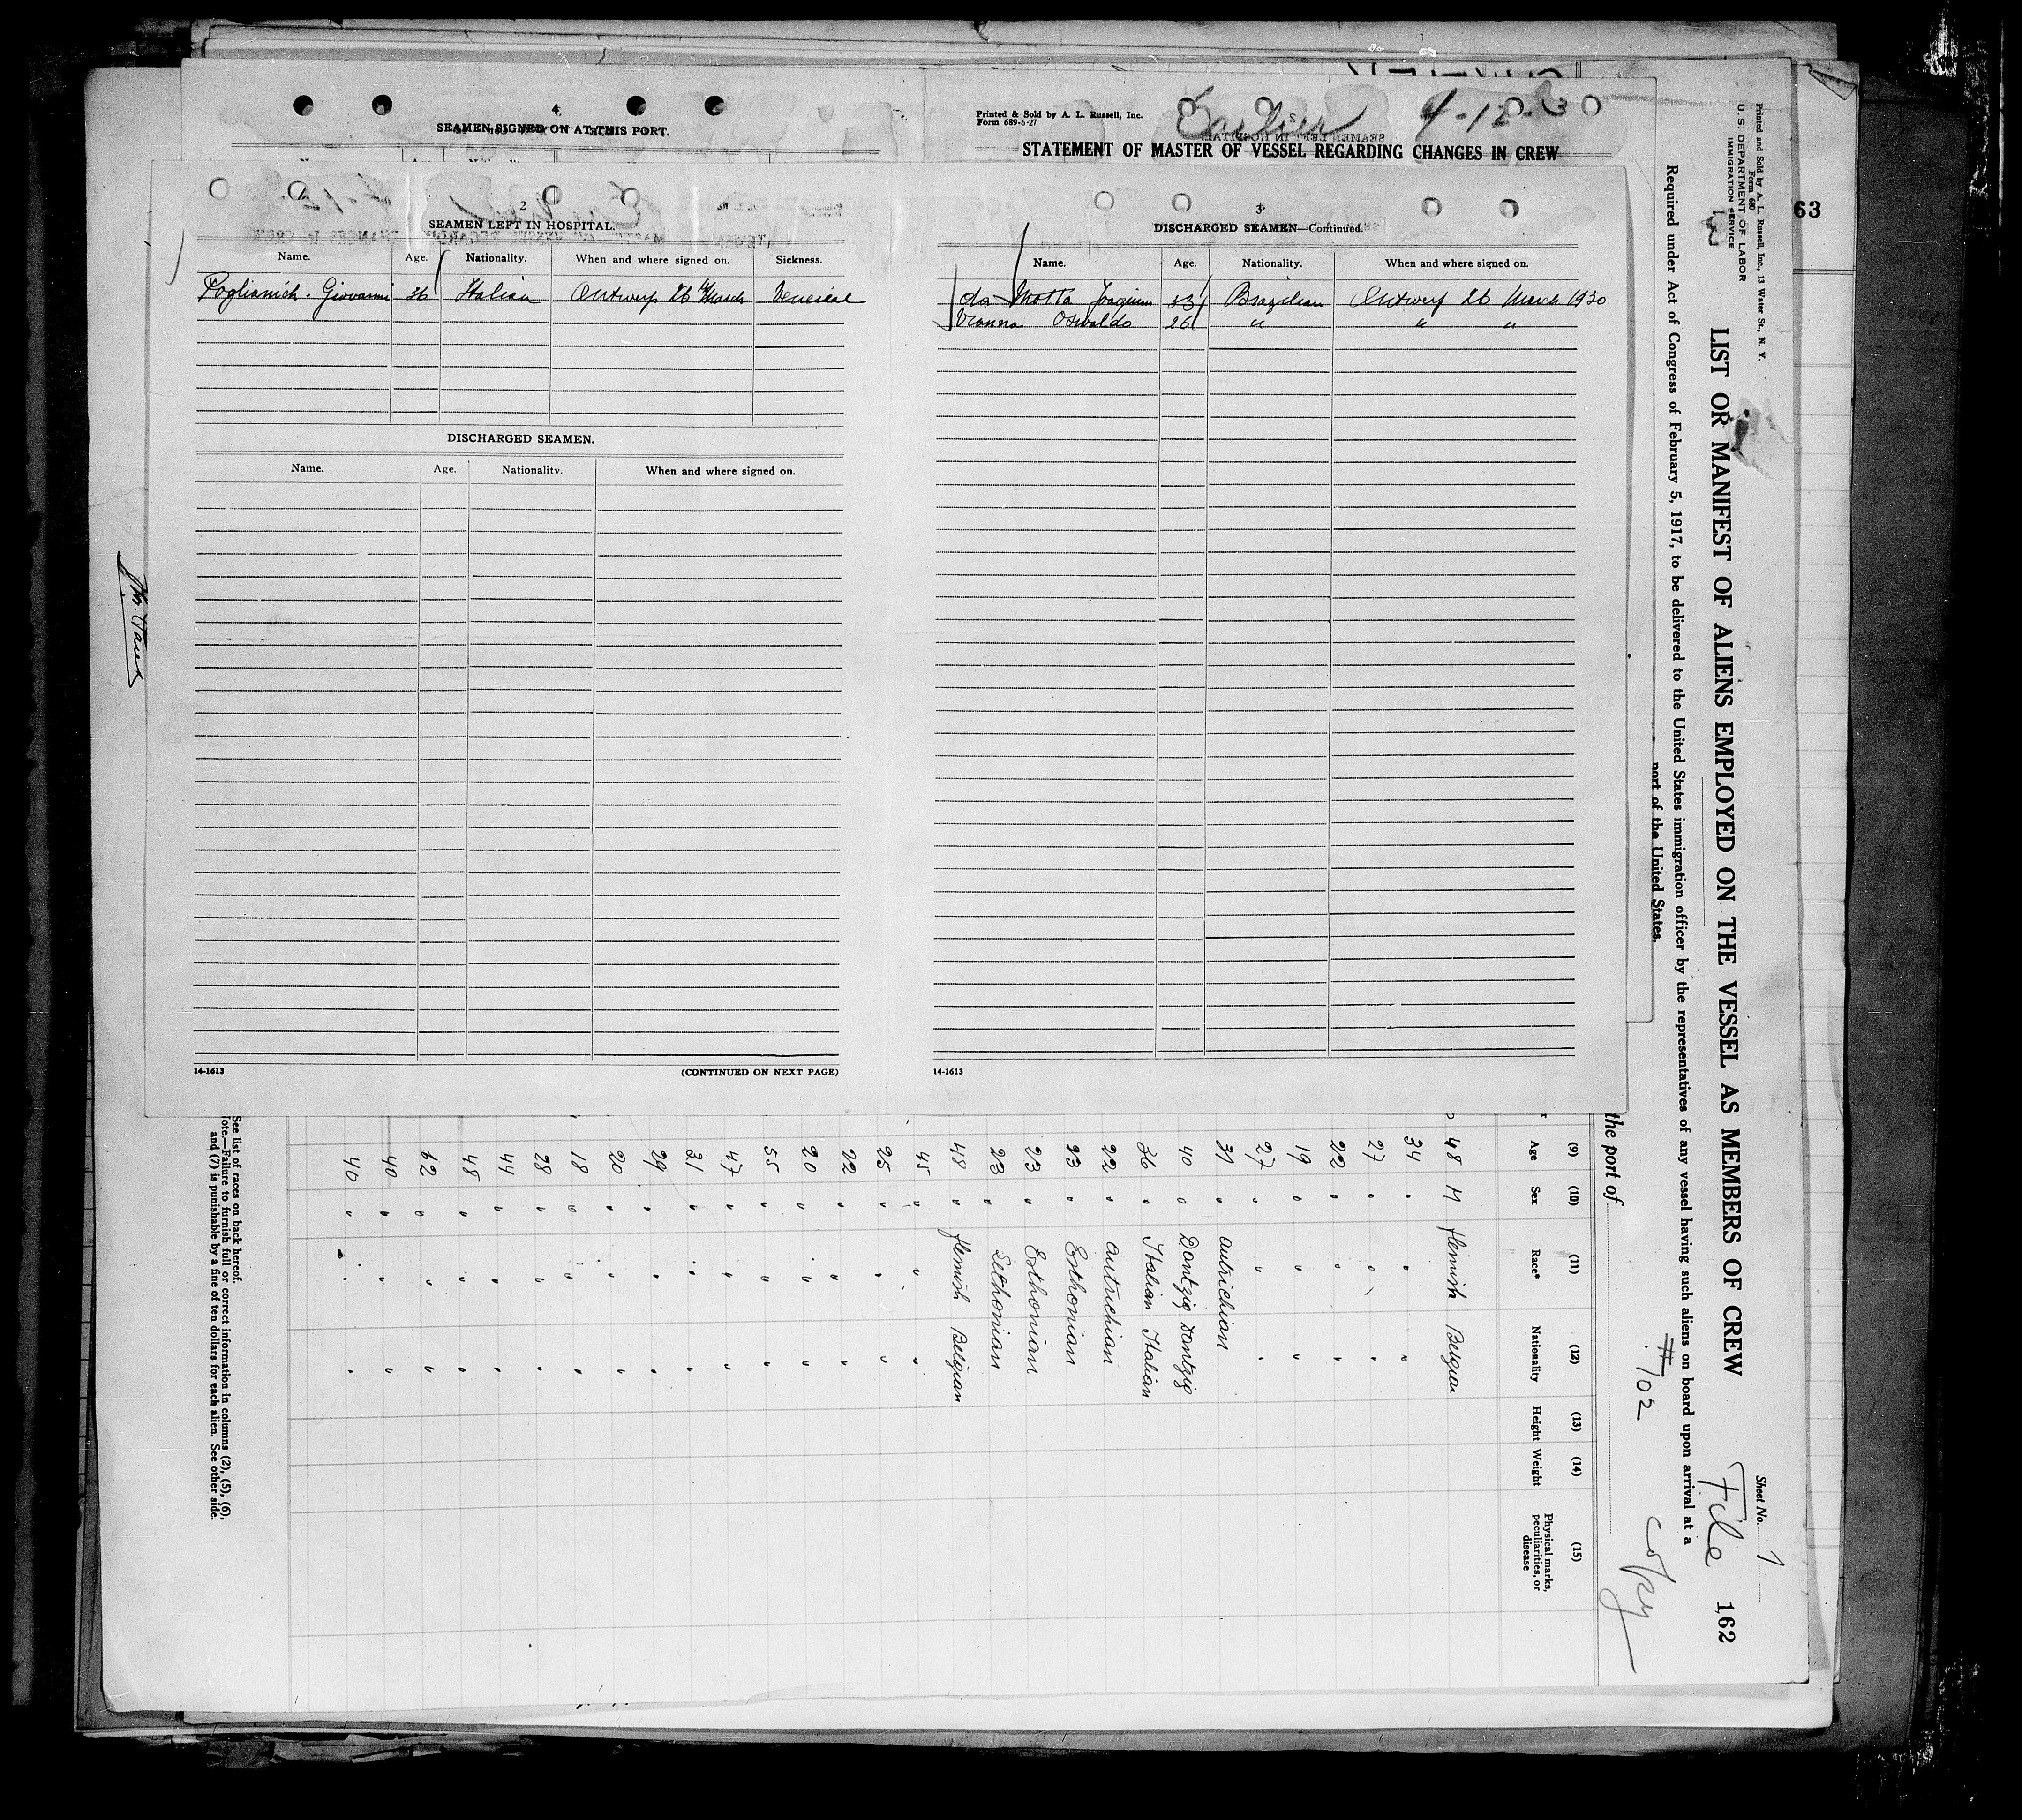 4
SEAMEN SIGNED ON AT THIS PORT.
Printed & Sold by A. L. Russell, Inc.
Form 689-6-27
4-12-
STATEMENT OF MASTER OF VESSEL REGARDING CHANGES IN CREW
2
SEAMEN LEFT IN HOSPITAL.
Name. Age. Nationality. When and where signed on. Sickness.
Poglianich. Giovanni 36 Italian Antwerp 26 March Venereal
DISCHARGED SEAMEN.
Name. Age. Nationality. When and where signed on.
14-1613 (CONTINUED ON NEXT PAGE)
3
DISCHARGED SEAMEN—Continued.
Name. Age. Nationality. When and where signed on.
da Motta Joaquim 33 Brazilian Antwerp 26 March 1930
Vianna Oswaldo 26 " " "
14-1613
63
Printed and Sold by A. L. Russell, Inc., 13 Water St., N. Y.
Form 680
U. S. DEPARTMENT OF LABOR
IMMIGRATION SERVICE
Sheet No. 1
LIST OR MANIFEST OF ALIENS EMPLOYED ON THE VESSEL AS MEMBERS OF CREW
File 162
Required under Act of Congress of February 5, 1917, to be delivered to the United States immigration officer by the representatives of any vessel having such aliens on board upon arrival at a
port of the United States.
#102 copy
the port of
(9) (10) (11) (12) (13) (14) (15)
Age Sex Race* Nationality Height Weight Physical marks, peculiarities, or disease
48 M flemish Belgian
34 " " "
27 " " "
22 " " "
19 " " "
27 " " "
31 " autrichian
40 " Dantzig Dantzig
36 " Italian Italian
22 " autrichian
23 " Esthonian
23 " Esthonian
23 " Esthonian
48 " flemish Belgian
45 " " "
25 " " "
22 " " "
20 " " "
55 " " "
47 " " "
31 " " "
29 " " "
20 " " "
18 " " "
28 " " "
44 " " "
48 " " "
62 " " "
40 " " "
40 " " "
See list of races on back hereof.
ote.—Failure to furnish full or correct information in columns (2), (5), (6),
and (7) is punishable by a fine of ten dollars for each alien. See other side.